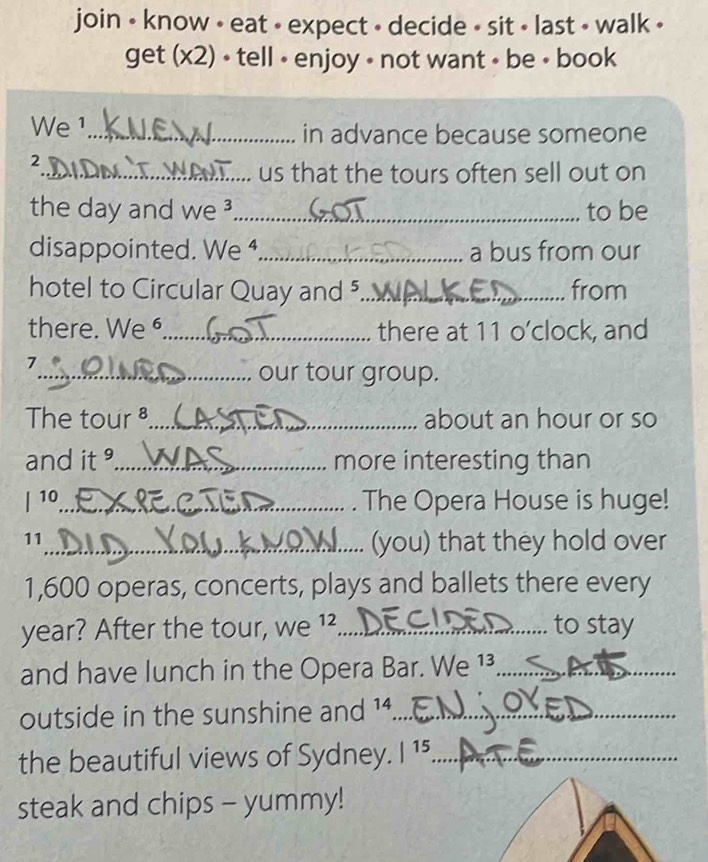 join • know • eat • expect • decide • sit • last • walk •
get (x2) • tell • enjoy • not want • be • book
We ¹ KNEW in advance because someone
² DIDN'T WANT us that the tours often sell out on
the day and we ³ GOT to be
disappointed. We ⁴ a bus from our
hotel to Circular Quay and ⁵ WALKED from
there. We ⁶ GOT there at 11 o'clock, and
⁷ jOINED our tour group.
The tour ⁸ LASTED about an hour or so
and it ⁹ WAS more interesting than
I ¹⁰ EXPECTED . The Opera House is huge!
¹¹ DID YOU KNOW (you) that they hold over
1,600 operas, concerts, plays and ballets there every
year? After the tour, we ¹² DECIDED to stay
and have lunch in the Opera Bar. We ¹³
outside in the sunshine and ¹⁴ ENjOYED
the beautiful views of Sydney. I ¹⁵ ATE
steak and chips – yummy!